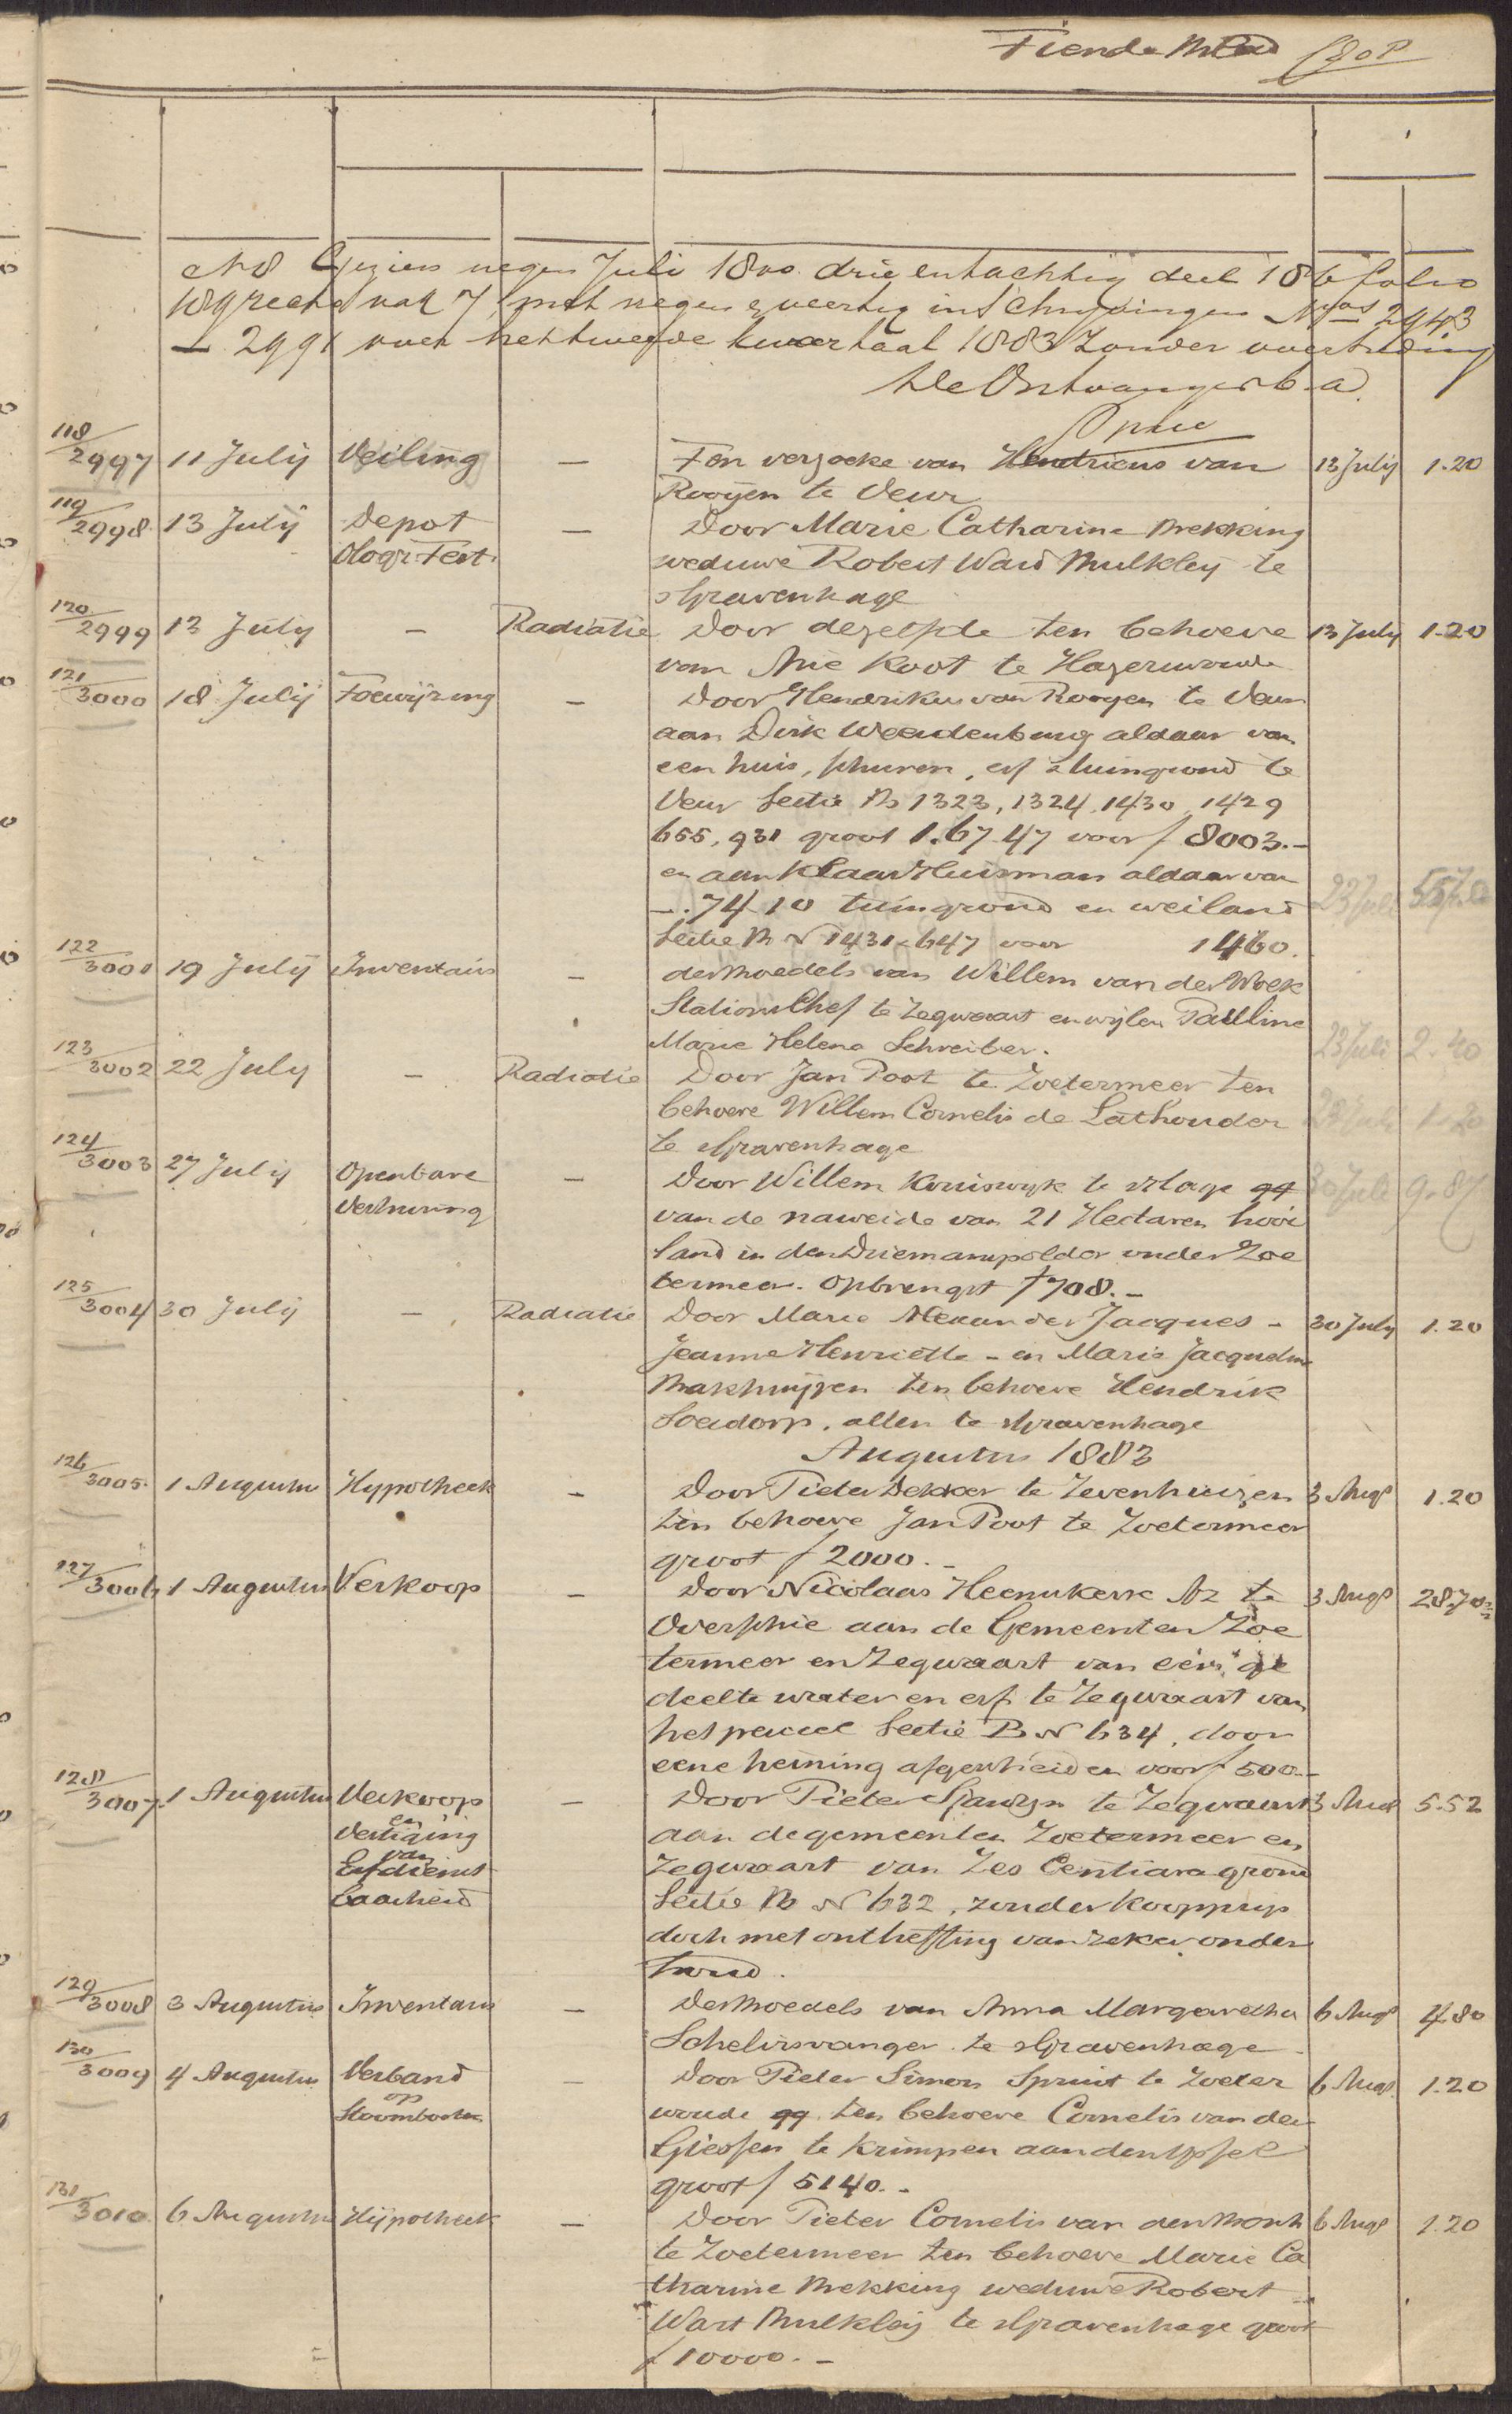 Tiende Blad
No 8 Gezien negen Juli 18no. drie en tachtig deel 186 folio
vak 7 met negen & veertig inschryvingen Nos 2943
— 2991 over het tweede kwartaal 1883 zonder overtreding
De Ontvanger b. a.
118/2997 11 July Veiling — Ten verzoeke van Hendricus van 13 July 1.20
Rooijen te Veur
119/2998 13 July Depot — Door Marie Catharine Mekking
Ologr. Test. weduwe Robert Ward Mulkley te
sGravenhage
120/2999 13 July — Radiatie Door dezelfde ten behoeve 13 July 1.20
van Arie Koot te Hazerswoude
121/3000 18 July Toewijzing — Door Hendrikus van Rooyen te Veur
aan Dirk Weerdenburg aldaar van
een huis, schuren, erf & tuingrond te
Veur Sectie B 1323, 1324, 1430, 1429
655, 931 groot 1.67.47 voor f 8003.-
en aan Klaas Huisman aldaar van
—.74.10 tuingrond en weiland 23 Juli
Sectie B N 1431-647 voor 1460.
122/3001 19 July Inventaris — des boedels van Willem van der Wolk
StationsChef te Zegwaart en wijlen Pauline
Marie Helena Schreiber. 23 Juli 2.40
123/3002 22 July — Radiatie Door Jan Poot te Zoetermeer ten
behoeve Willem Cornelis de Lathouder 23 Juli 1.20
te sGravenhage
124/3003 27 July Openbare — Door Willem Kruiswyk te sHage qq 30 Juli 9.87
Verhuring van de naweide van 21 Hectaren hooi
land in den Driemanspolder onder Zoe
termeer. Opbrengst f 708.-
125/3004 30 July — Radiatie Door Marie Alexander Jacques - 30 July 1.20
Jeanne Henriette - en Marie Jacqueline
ten behoeve Hendrik
allen te sGravenhage
Augustus 1883
126/3005. 1 Augustus Hypotheek — Door Pieter Dekker te Zevenhuizen 3 Augs 1.20
ten behoeve Jan Poot te Zoetermeer
groot f 2000.-
127/3006 1 Augustus Verkoop — Door Nicolaas Heemskerk Az te 3 Augs 28.70
Overschie aan de Gemeenten Zoe
termeer en Zegwaart van eenige ge
deelte water en erf te Zegwaart van
het perceel Sectie B N 634, door
eene heining afgescheiden voor f 500.-
128/3007. 1 Augustus Verkoop — Door Pieter te Zegwaart 3 Augs 5.52
en
Vestiging aan de gemeenten Zoetermeer en
van
Erfdienst Zegwaart van Zes Centiare grond
baarheid Sectie B N 632, zonder koopprys
doch met ontheffing van zeker onder
houd.
129/3008 3 Augustus Inventaris — des boedels van Anna Margaretha 6 Augs 4.80
Schelvisvanger te sGravenhage
130/3009 4 Augustus Verband — Door Pieter Simon Spruit te Zoeter 6 Augs 1.20
op
Stoombooten woude qq. ten behoeve Cornelis van der
Giessen te Krimpen aan den Yssel
groot f 5140.-
131/3010. 6 Augustus Hypotheek — Door Pieter Cornelis van den 6 Augs 1.20
te Zoetermeer ten behoeve Marie Ca
tharine Mekking weduwe Robert
Wart Mulkley te sGravenhage groot
f 10000.-